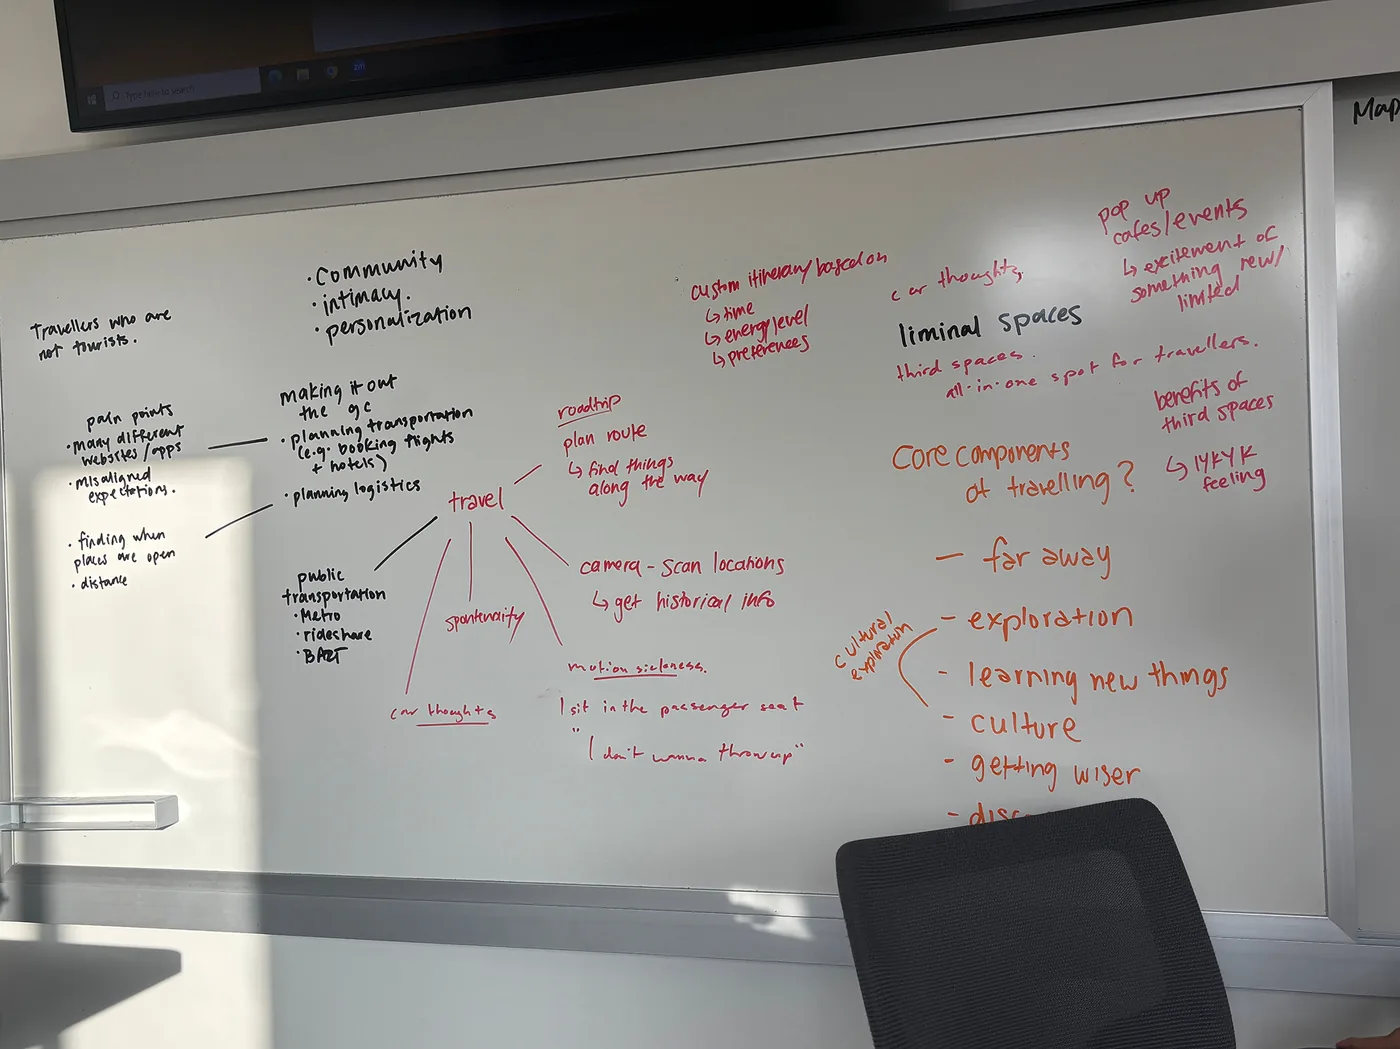 Type here to search
zm
Map
Travellers who are
not tourists.
• Community
• intimacy.
• personalization
pain points
• many different
websites/apps
• misaligned
expectations.
• finding when
places are open
• distance
making it out
the gc
• planning transportation
(e.g. booking flights
+ hotels)
• planning logistics
public
transportation
• Metro
• rideshare
• BART
travel
roadtrip
plan route
↳ find things
along the way
camera - scan locations
↳ get historical info
spontenaity
motion sickness.
I sit in the passenger seat
"I don't wanna throw up"
car thoughts
custom itinerary based on
↳ time
↳ energy level
↳ preferences
car thoughts,
liminal spaces
third spaces.
all-in-one spot for travellers.
pop up
cafes/events
↳ excitement of
something new/
limited
benefits of
third spaces
↳ IYKYK
feeling
Core components
of travelling?
- far away
- exploration
- learning new things
- culture
- getting wiser
cultural
exploration